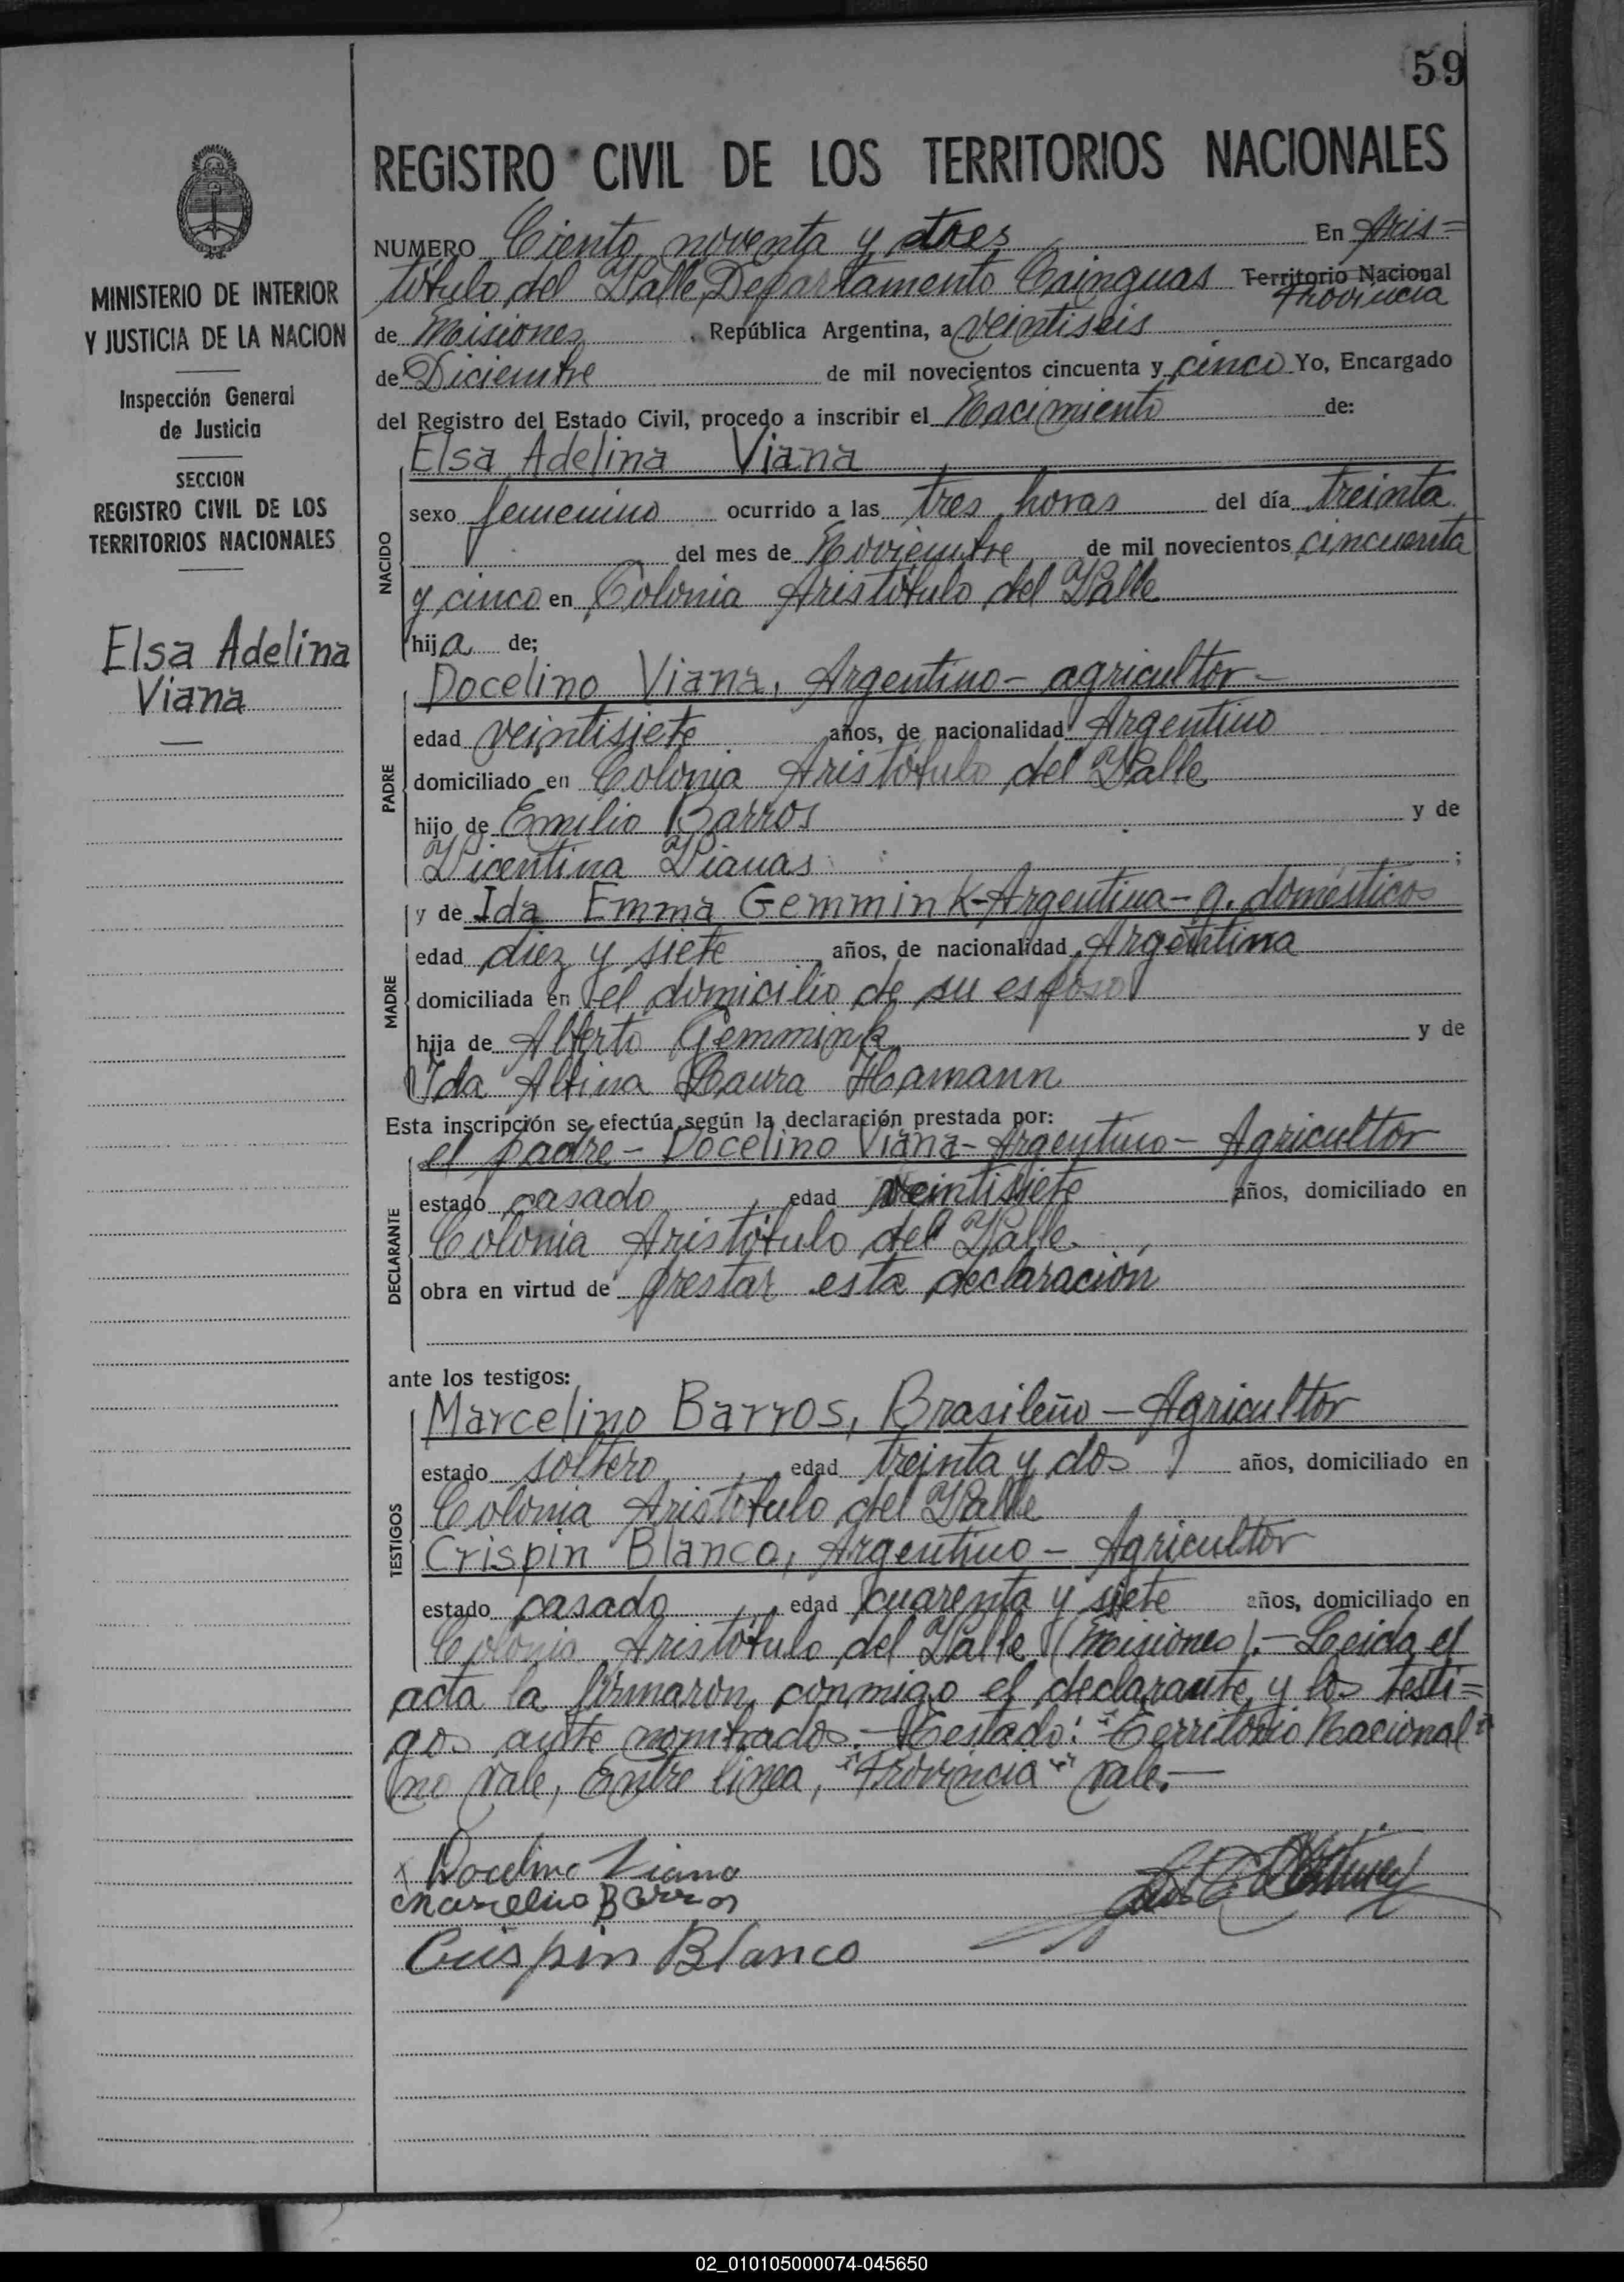 59
REGISTRO CIVIL DE LOS TERRITORIOS NACIONALES
MINISTERIO DE INTERIOR
Y JUSTICIA DE LA NACION
Inspección General
de Justicia
SECCION
REGISTRO CIVIL DE LOS
TERRITORIOS NACIONALES
Elsa Adelina
Viana
NUMERO Ciento noventa y dos En Aris=
tóbulo del Valle, Departamento Cainguas Territorio Nacional
Provincia
de Misiones, República Argentina, a veintiseis
de Diciembre de mil novecientos cincuenta y cinco Yo, Encargado
del Registro del Estado Civil, procedo a inscribir el Nacimiento de:
Elsa Adelina Viana
NACIDO
sexo femenino ocurrido a las tres horas del día treinta
del mes de Noviembre de mil novecientos cincuenta
y cinco en Colonia Aristóbulo del Valle
hija de;
PADRE
Docelino Viana, Argentino - agricultor -
edad veintisiete años, de nacionalidad Argentino
domiciliado en Colonia Aristóbulo del Valle
hijo de Emilio Barros y de
Vicentina Vianas ;
MADRE
y de Ida Emma Gemmink - Argentina - q. domésticos
edad diez y siete años, de nacionalidad Argentina
domiciliada en el domicilio de su esposo
hija de Alberto Gemmink y de
Ida Albina Laura Hamann
Esta inscripción se efectúa según la declaración prestada por:
DECLARANTE
el padre - Docelino Viana - Argentino - Agricultor
estado casado edad veintisiete años, domiciliado en
Colonia Aristóbulo del Valle.
obra en virtud de prestar esta declaración
ante los testigos:
TESTIGOS
Marcelino Barros, Brasileño - Agricultor
estado soltero edad treinta y dos años, domiciliado en
Colonia Aristóbulo del Valle
Crispin Blanco, Argentino - Agricultor
estado casado edad cuarenta y siete años, domiciliado en
Colonia Aristóbulo del Valle (Misiones).- Leida el
acta la firmaron conmigo el declarante y los testi=
gos ante nombrados.- Testado: "Territorio Nacional"
no vale, Entre linea, "Provincia" vale.-
x Docelino Viana
Marcelino Barros
Crispin Blanco
02_010105000074-045650